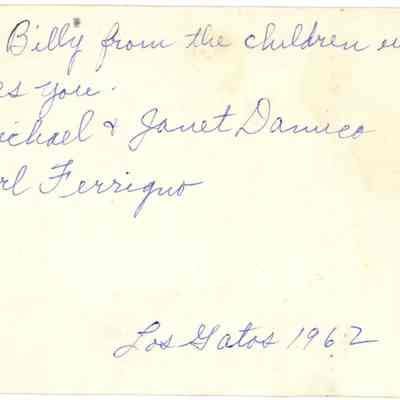 Billy from the children
es you.
ichael & Janet Damico
rl Ferrigno
Los Gatos 1962